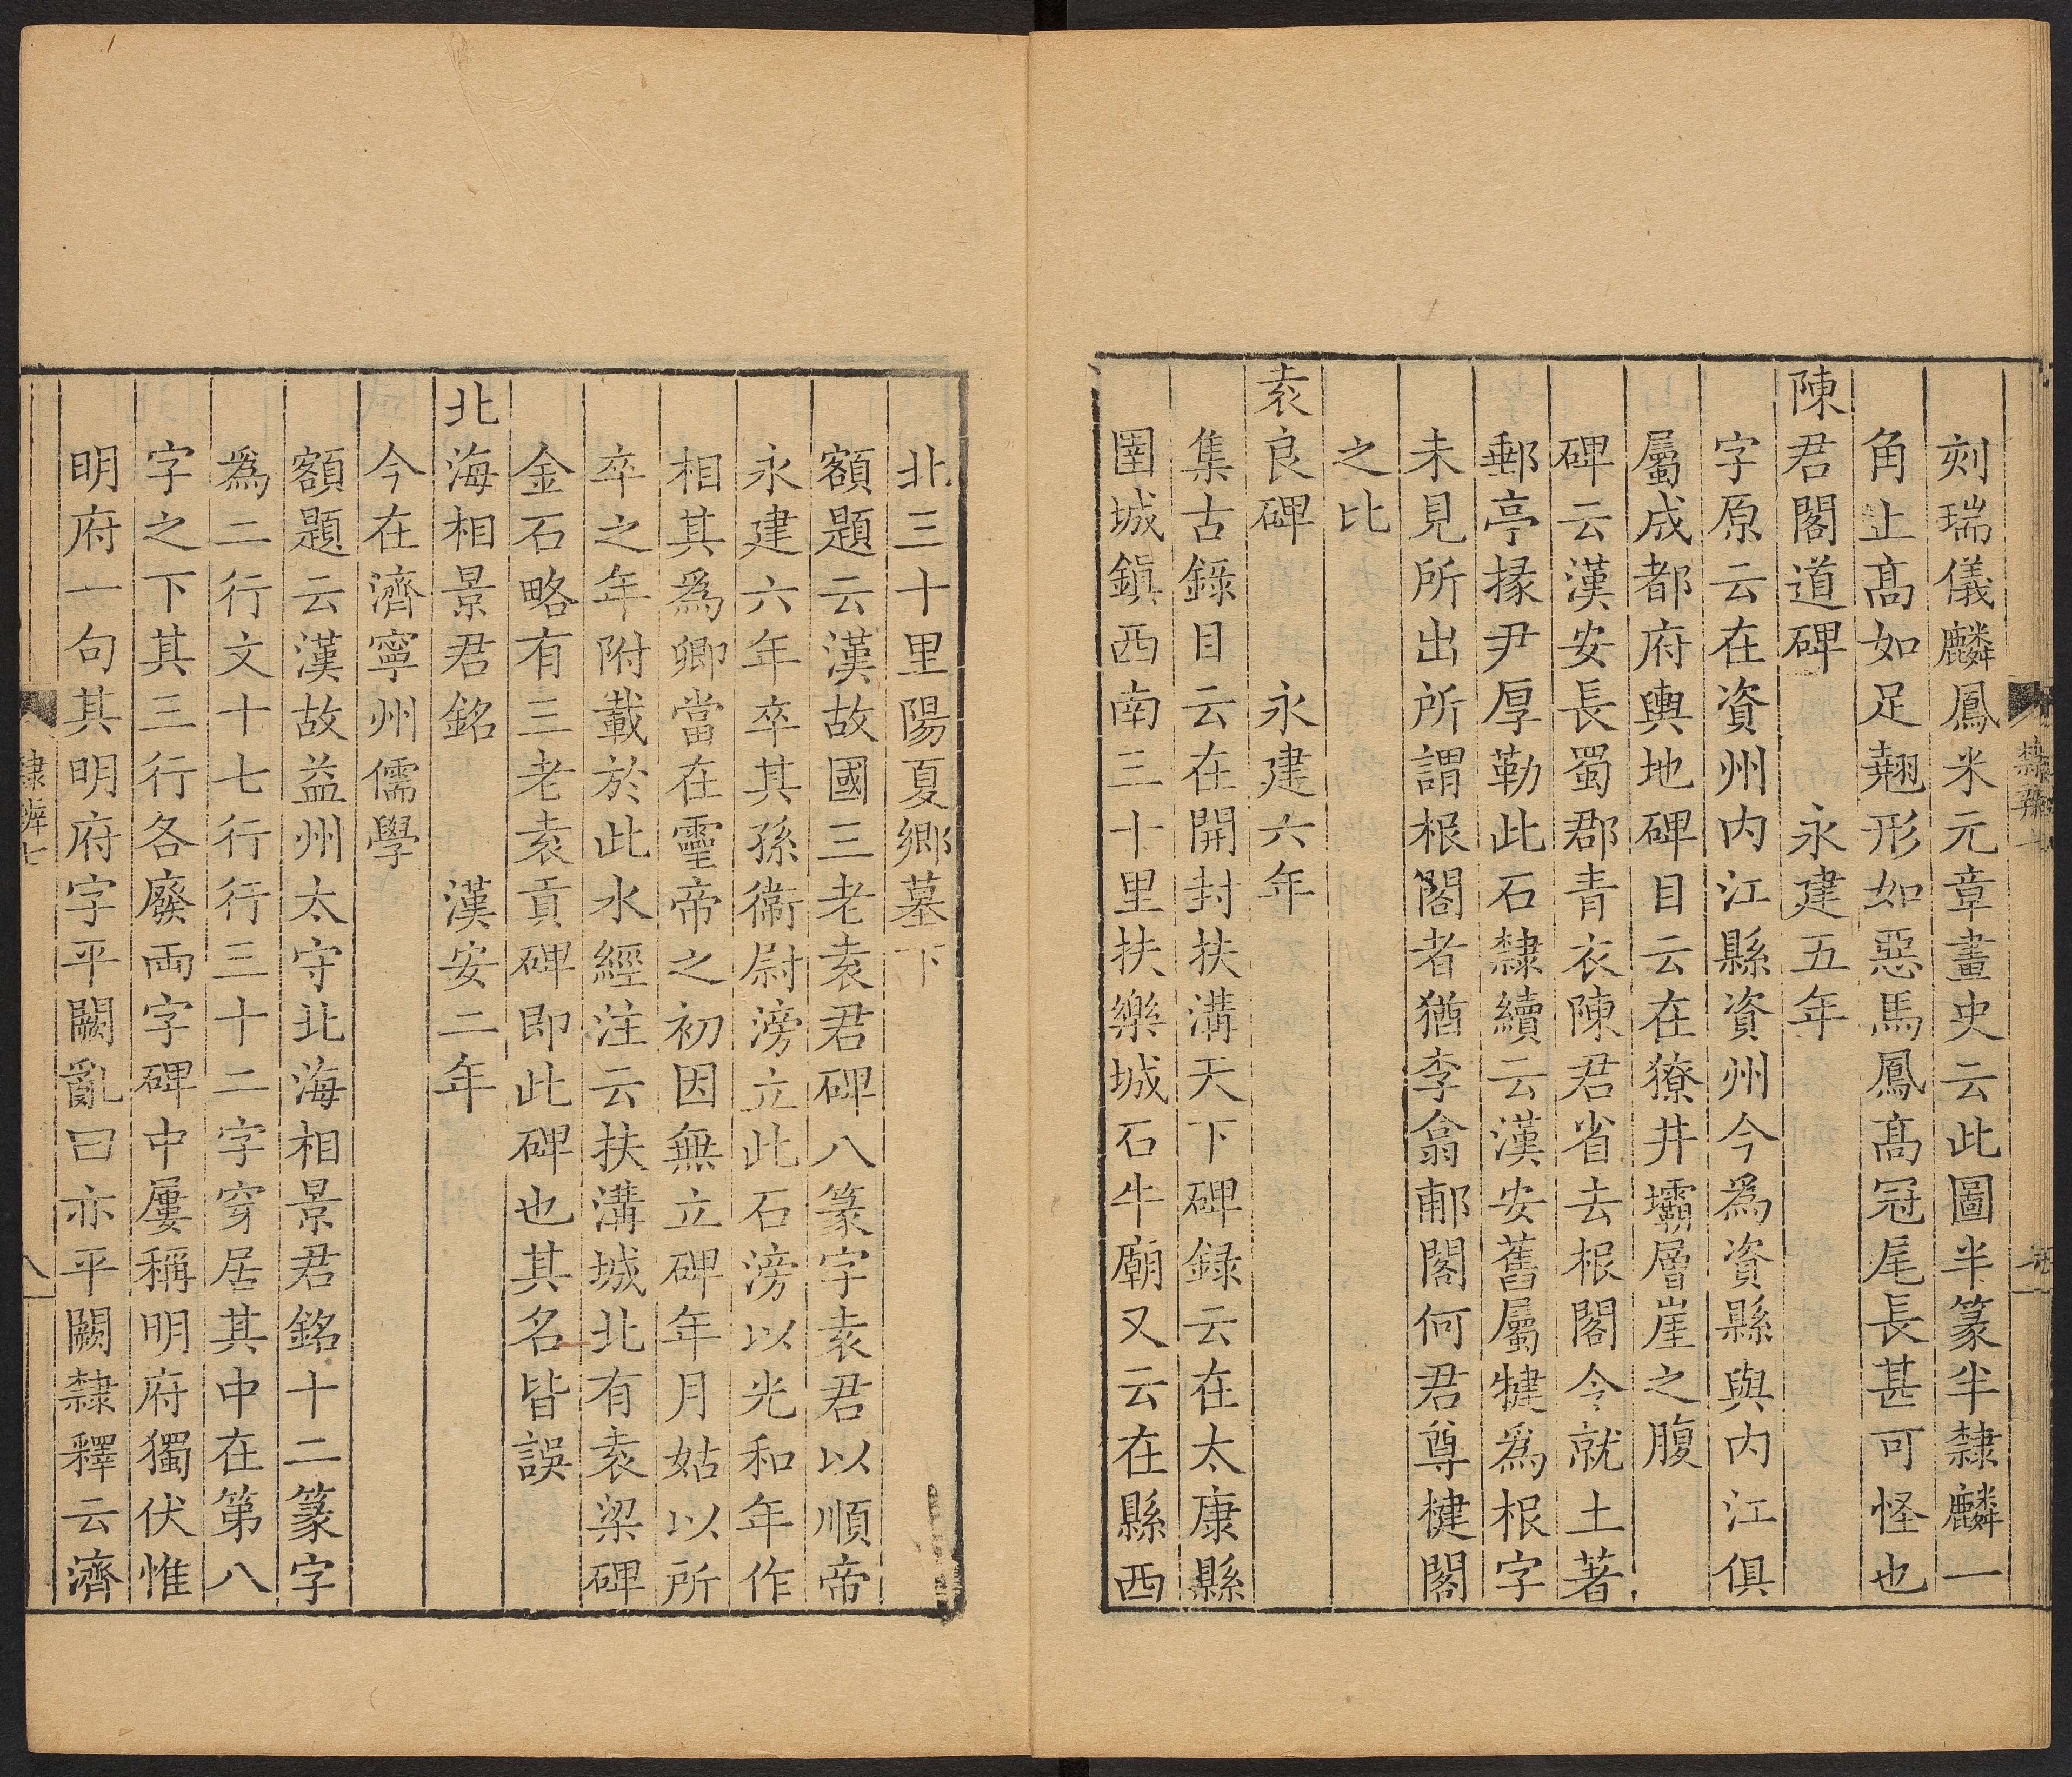 刻瑞儀麟鳳米元章畫史云此圖半篆半隸麟一
角止髙如足翹形如惡馬鳳髙冠尾長甚可怪也
陳君閣道碑 永建五年
字原云在資州内江縣資州今為資縣與内江俱
屬成都府輿地碑目云在獠井壩層崖之腹
碑云漢安長蜀郡青衣陳君省去根閣令就土著
郵亭掾尹厚勒此石隸續云漢安舊屬犍爲根字
未見所出所謂根閣者猶李翕郙閣何君尊楗閣
之比
袁良碑 永建六年
集古錄目云在開封扶溝天下碑録云在太康縣
圉城鎮西南三十里扶樂城石牛廟又云在縣西
北三十里陽夏鄉墓下
額題云漢故國三老袁君碑八篆字袁君以順帝
永建六年卒其孫衞尉滂立此石滂以光和年作
相其爲卿當在靈帝之初因無立碑年月姑以所
卒之年附載於此水經注云扶溝城北有袁梁碑
金石略有三老袁貢碑即此碑也其名皆誤
北海相景君銘 漢安二年
今在濟寧州儒學
額題云漢故益州太守北海相景君銘十二篆字
爲二行文十七行行三十二字穿居其中在第八
字之下其三行各廢兩字碑中屢稱明府獨伏惟
明府一句其明府字平闕亂曰亦平闕隸釋云濟
隸辨七
八